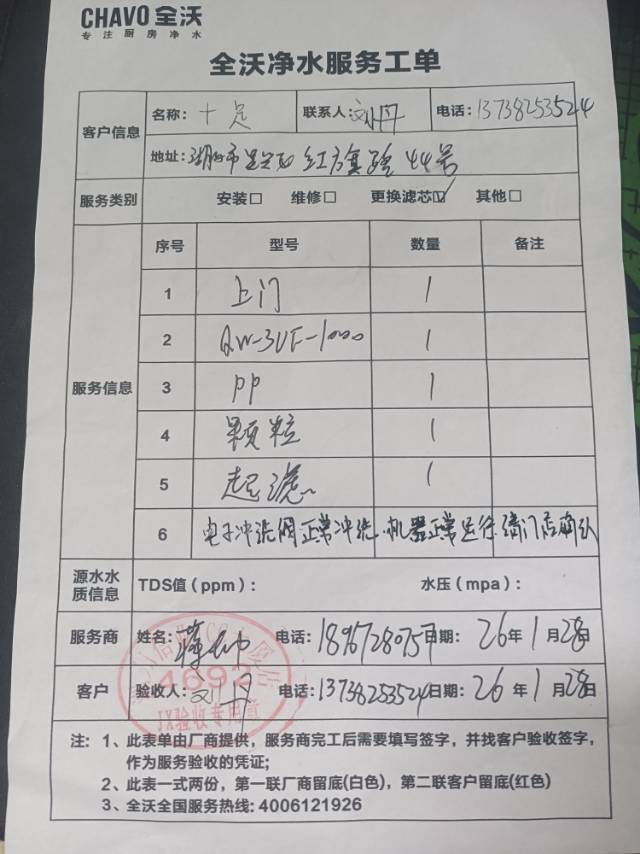 CHAVO 全沃
专注厨房净水
全沃净水服务工单
客户信息 名称: 十足 联系人: 刘丹 电话: 13738253524
地址: 湖州市吴兴区红旗路44号
服务类别 安装□ 维修□ 更换滤芯☑ 其他□
服务信息 序号 型号 数量 备注
1 上门 1
2 QW-3UF-1000 1
3 PP 1
4 颗粒 1
5 超滤 1
6 电子冲洗阀正常冲洗.机器正常运行 请门店确认
源水水质信息 TDS值（ppm）: 水压（mpa）:
服务商 姓名: 电话: 18967280757 日期: 26年1月28日
客户 验收人: 刘丹 电话: 13738253524 日期: 26年1月28日
4692
JX验收专用章
注: 1、此表单由厂商提供，服务商完工后需要填写签字，并找客户验收签字，
作为服务验收的凭证;
2、此表一式两份，第一联厂商留底(白色)，第二联客户留底(红色)
3、全沃全国服务热线: 4006121926